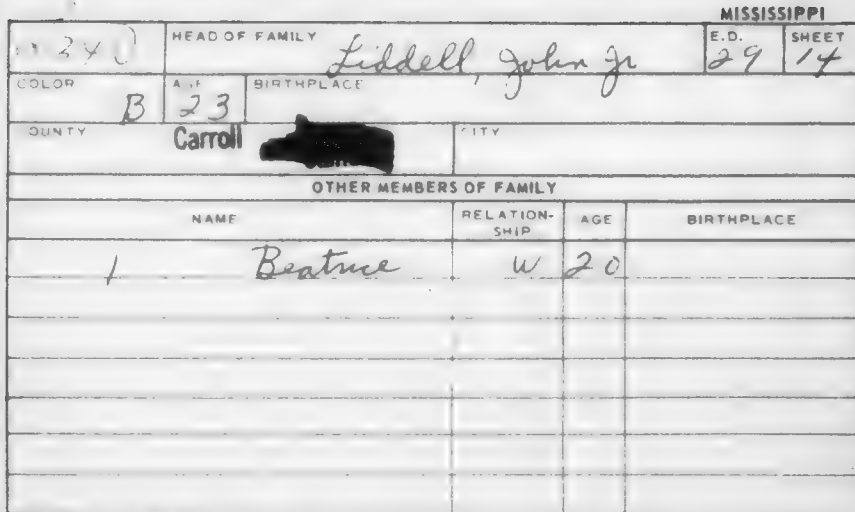 MISSISSIPPI
240 HEAD OF FAMILY Liddell, John Jr E.D. 29 SHEET 14
COLOR B AGE 23 BIRTHPLACE
OUNTY Carroll CITY
OTHER MEMBERS OF FAMILY
NAME RELATION-SHIP AGE BIRTHPLACE
1 Beatrice W 20